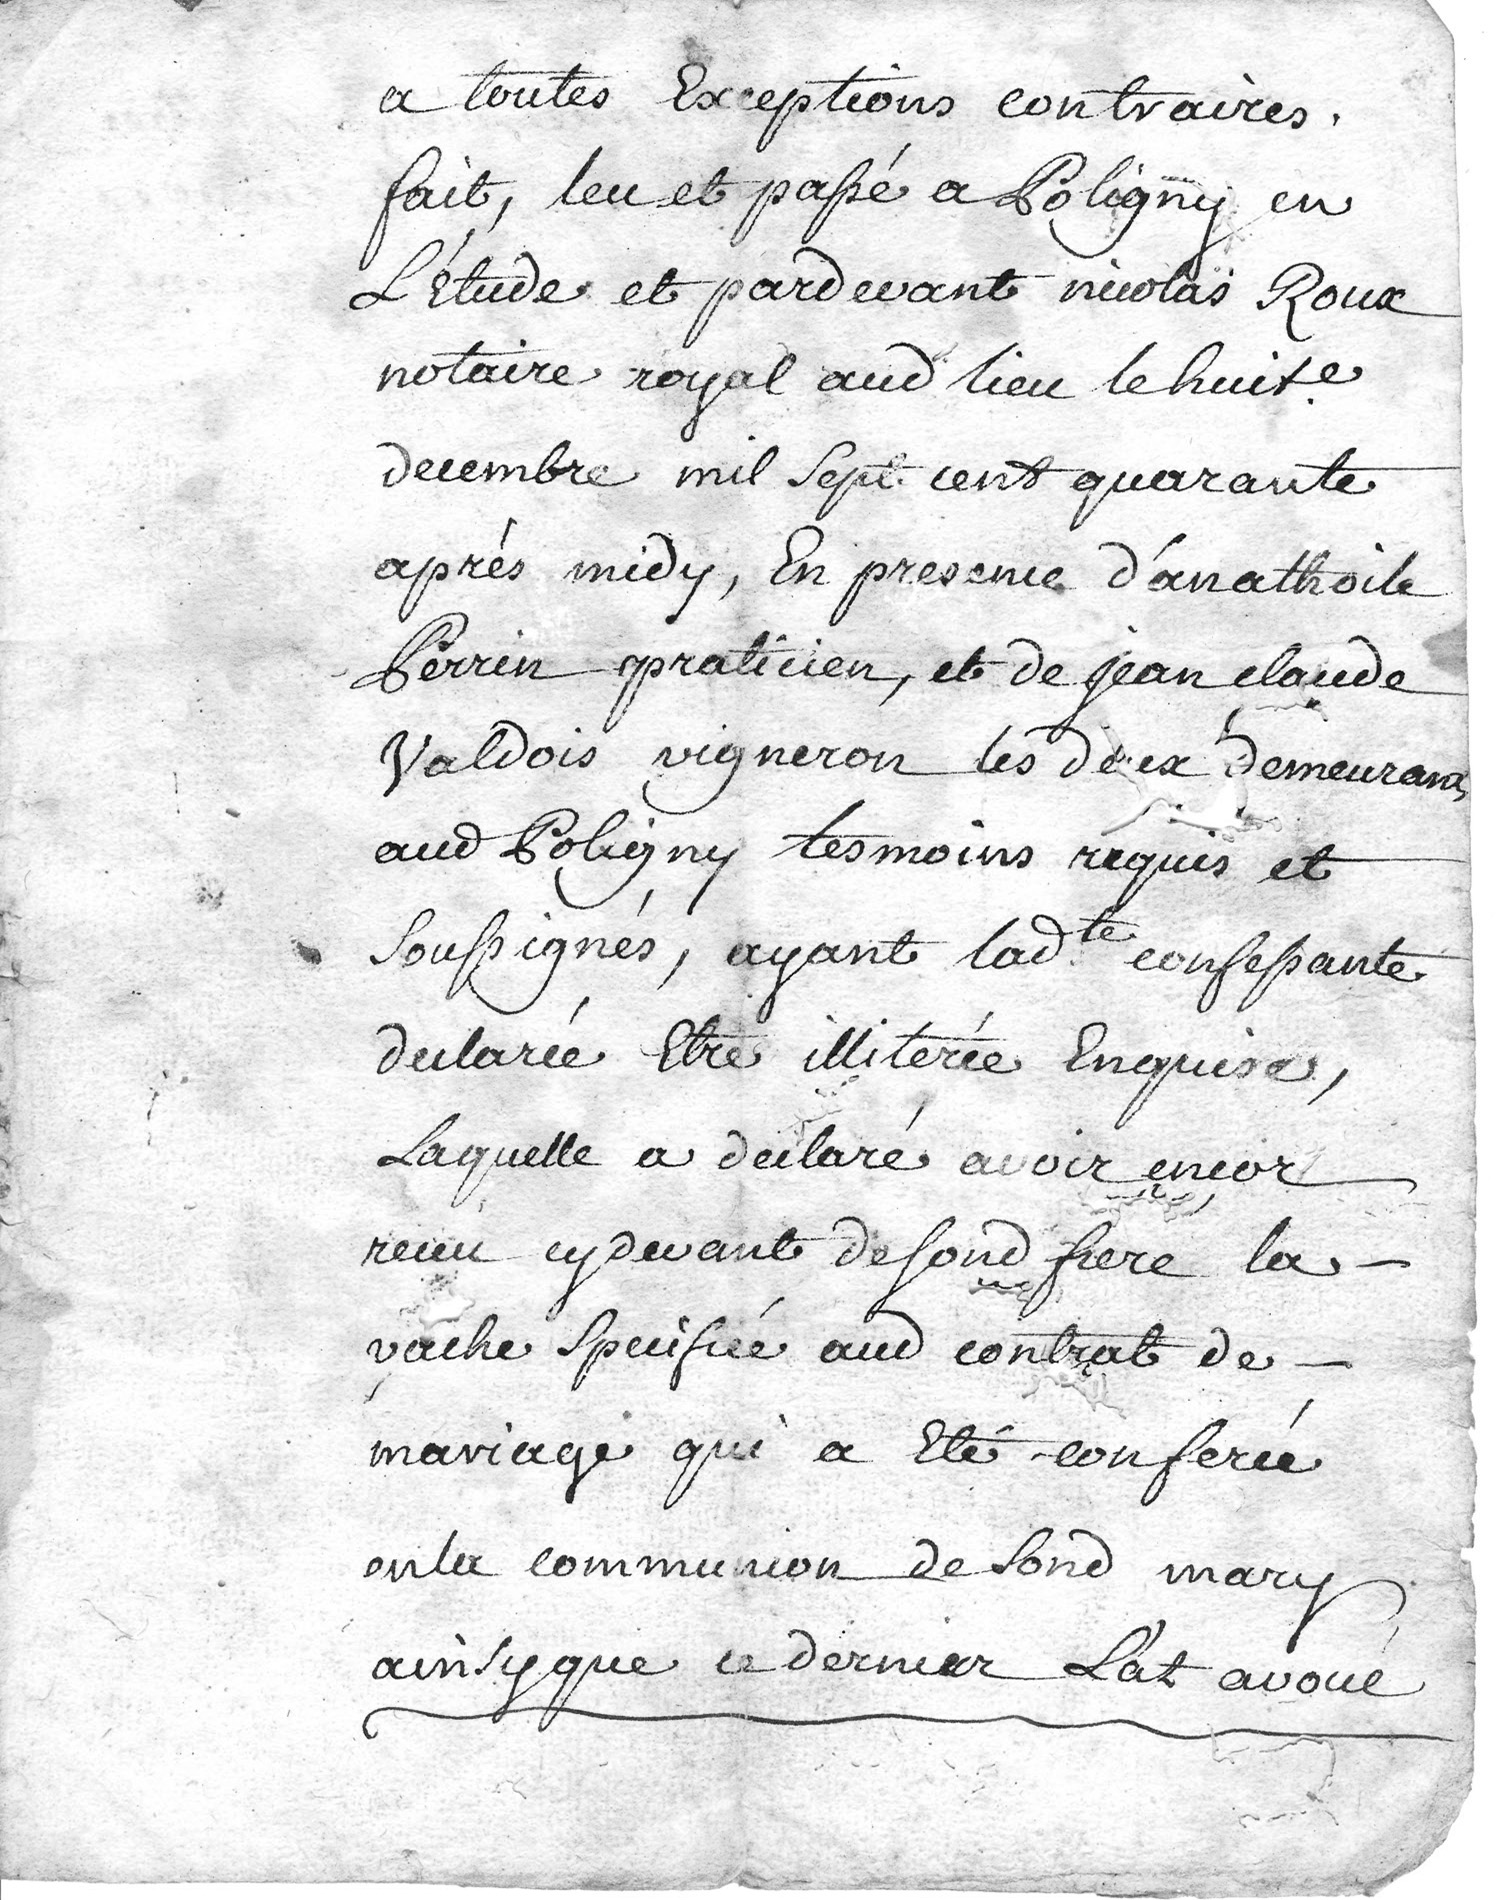 a toutes Exceptions contraires.
fait, leu et passé a Poligny en
L'étude et pardevant nicolas Roux
notaire royal aud lieu le huit.e
decembre mil sept cent quarante
aprés midy, En presence d'anathoile
Perrin praticien, et de jean claude
Valdois vigneron les deux demeurans
aud Poligny tesmoins requis et
soussignés, ayant lad.te confessante
declarée Etre illiterée Enquise,
Laquelle a declaré avoir encor
receu cydevant de sond frere la
vache specifiée aud contrat de
mariage qui a Eté conferée
en la communion de sond mary
ainsy que ce dernier L'at avoué